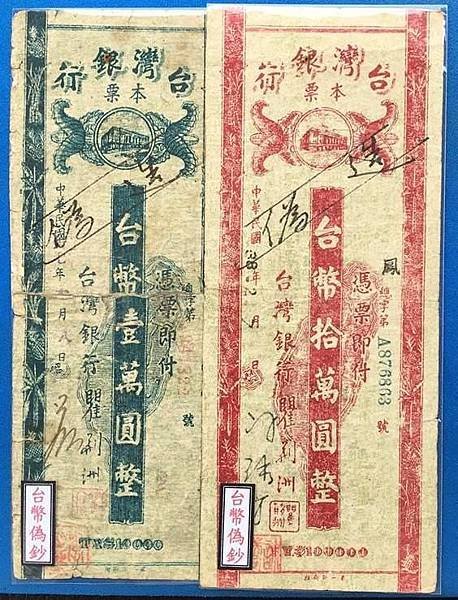 台灣銀行
本票
偽造
總字第 號
憑票即付
台幣壹萬圓整
台灣銀行瞿荊洲
中華民國 年 月八日
台幣偽鈔
台灣銀行
本票
偽造
鳳總字第A876863號
憑票即付
台幣拾萬圓整
台灣銀行瞿荊洲
中華民國38年 月 日
台幣偽鈔